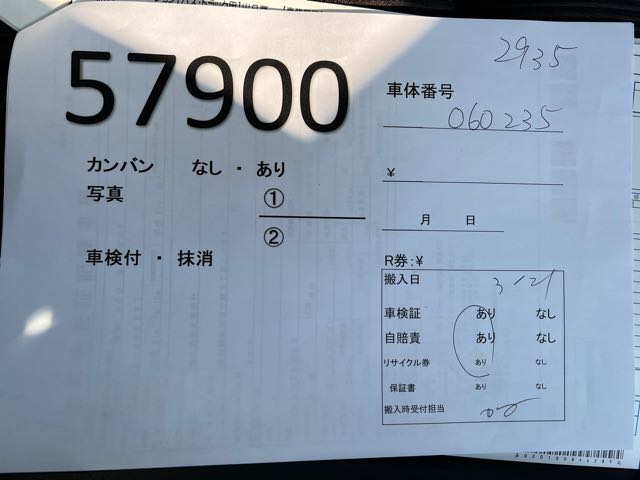 2935
57900
車体番号
060235
カンバン なし ・ あり
¥
写真 ①
月 日
②
車検付 ・ 抹消
R券:¥
搬入日 3/21
車検証 あり なし
自賠責 あり なし
リサイクル券 あり なし
保証書 あり なし
搬入時受付担当